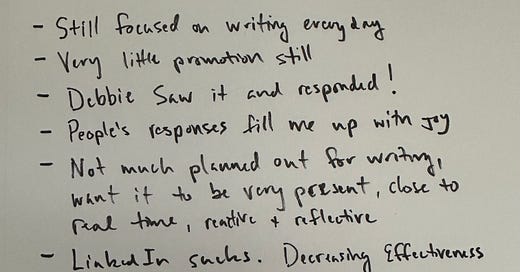 - Still focused on writing everyday
- Very little promotion still
- Debbie Saw it and responded!
- People's responses fill me up with joy
- Not much planned out for writing,
want it to be very present, close to
real time, reactive + reflective
- LinkedIn sucks. Decreasing Effectiveness